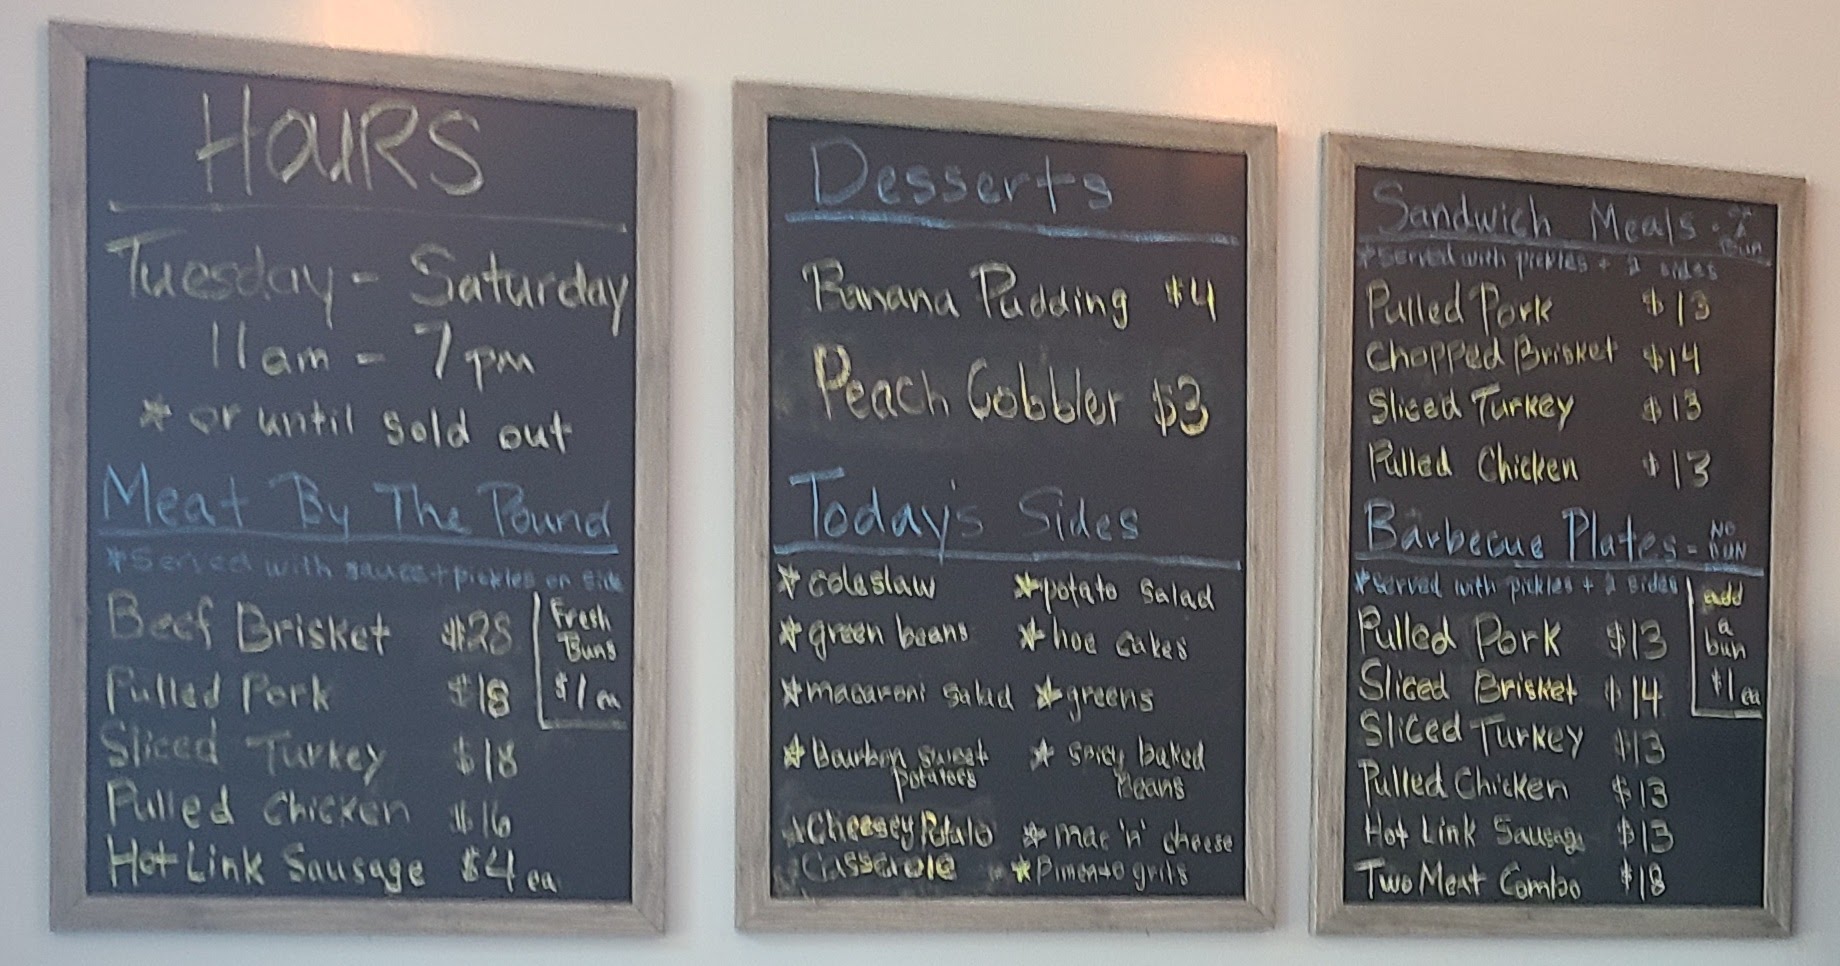 HOURS
Tuesday - Saturday
11am - 7pm
* or until sold out
Meat By The Pound
*Served with sauce + pickles on side
Beef Brisket $28
Pulled Pork $18
Sliced Turkey $18
Pulled Chicken $16
Hot Link Sausage $4 ea
Fresh
Buns
$1 ea
Desserts
Banana Pudding $4
Peach Cobbler $3
Today's Sides
*coleslaw *potato salad
*green beans *hoe cakes
*macaroni salad *greens
*bourbon sweet * spicy baked
potatoes beans
*Cheesey Potato *mac 'n' cheese
Casserole *Pimento grits
Sandwich Meals - 
Bun
*served with pickles + 2 sides
Pulled Pork $13
Chopped Brisket $14
Sliced Turkey $13
Pulled Chicken $13
Barbecue Plates - NO
BUN
*served with pickles + 2 sides
Pulled Pork $13
Sliced Brisket $14
Sliced Turkey $13
Pulled Chicken $13
Hot Link Sausage $13
Two Meat Combo $18
add
a
bun
$1 ea